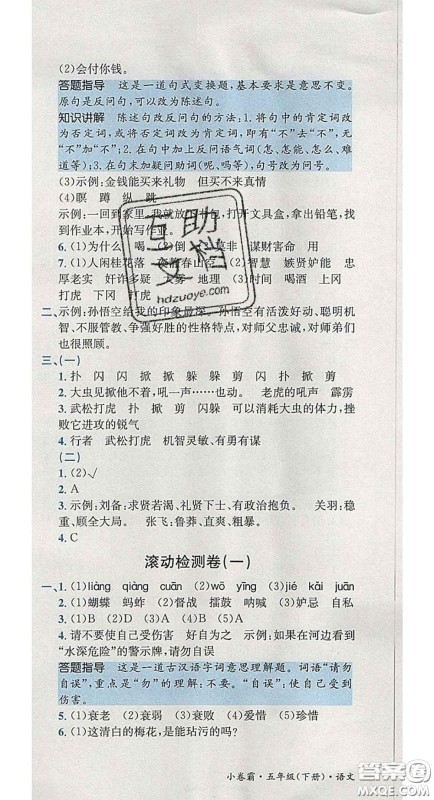 (2)会付你钱。
答题指导 这是一道句式变换题，基本要求是意思不变。
原句是反问句，可以改为陈述句。
知识讲解 陈述句改反问句的方法：1. 将句中的肯定词改
为否定词，或将否定词改为肯定词，即有“去”“不”，无
“加”“不”；2. 在句中加上反问语气词(怎、怎能、怎么、难
道等)；3. 在句末加疑问助词(呢、吗等)，句号改为问号。
(3)示例：金钱能买来礼物 但买不来真情
(4)瞑 蹲 纵 跳
示例：一回到家里，我就放下书包，打开文具盒，拿出铅笔，找
出作业本，开始写作业。
6. (1)为什么 喝 (2)倒 莫非 谋财害命 用
7. (1)人闲桂花落 夜静春山空 (2)智慧 嫉贤妒能 忠
厚老实 奸诈多疑 (3)时间 喝酒 上冈
打虎 下冈 打虎
二、示例：孙悟空给我的印象最深。孙悟空有活泼好动、聪明机
智、不服管教、争强好胜的性格特点，对师父忠诚，对师弟们
也很照顾。
三、(一)
1. 扑 闪 闪 掀 掀 躲 躲 剪 闪 扑 掀 剪
2. 大虫见掀他不着，吼一声……也动。 老虎的吼声 霹雳
3. 武松打虎 扑 掀 剪 闪躲 可以消耗大虫的体力，挫
败它进攻的锐气
4. 行者 武松打虎 机智灵敏、有勇有谋
(二)
1. (2)√
2. A
3. 示例：刘备：求贤若渴、礼贤下士、有政治抱负。 关羽：稳
重、顾全大局。 张飞：鲁莽、直爽、粗暴。
4. C
滚动检测卷(一)
一、1. (1)liàng qiàng cuān (2)wō yīng (3)jié kǎi juān
2. (1)蝴蝶 蚂蚱 (2)督战 擂鼓 呐喊 (3)妒忌 自私
3. (1)B (2)D (3)A (4)A (5)D
4. 请不要使自己受伤害 好自为之 示例：如果在河边看到
“水深危险”的警示牌，请勿自误
答题指导 这是一道古汉语字词意思理解题。词语“请勿
自误”，重点是“勿”的理解：不要。“自误”：使自己受到
伤害。
5. (1)衰老 (2)衰弱 (3)衰败 (4)爱惜 (5)惋惜
6. (1)这清白的梅花，是能玷污的吗？
小卷霸·五年级(下册)·语文
互助
文档
hdzuoye.com
答案圈
MXQE.COM